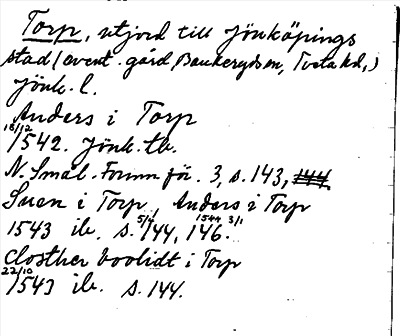 Torp, utjord till Jönköpings
stad (event. gård, Bankerydsn, Tveta hd,)
Jönk. l.
Anders i Torp
18/12 1542. Jönk. tb.
N. Smål. Fornm för. 3, s. 143, 144
Suen i Torp, Anders i Torp
1543 ib. s. 5/4 144, 1544 3/1 146.
Closther boolidt i Torp
22/10 1543 ib. s. 144.